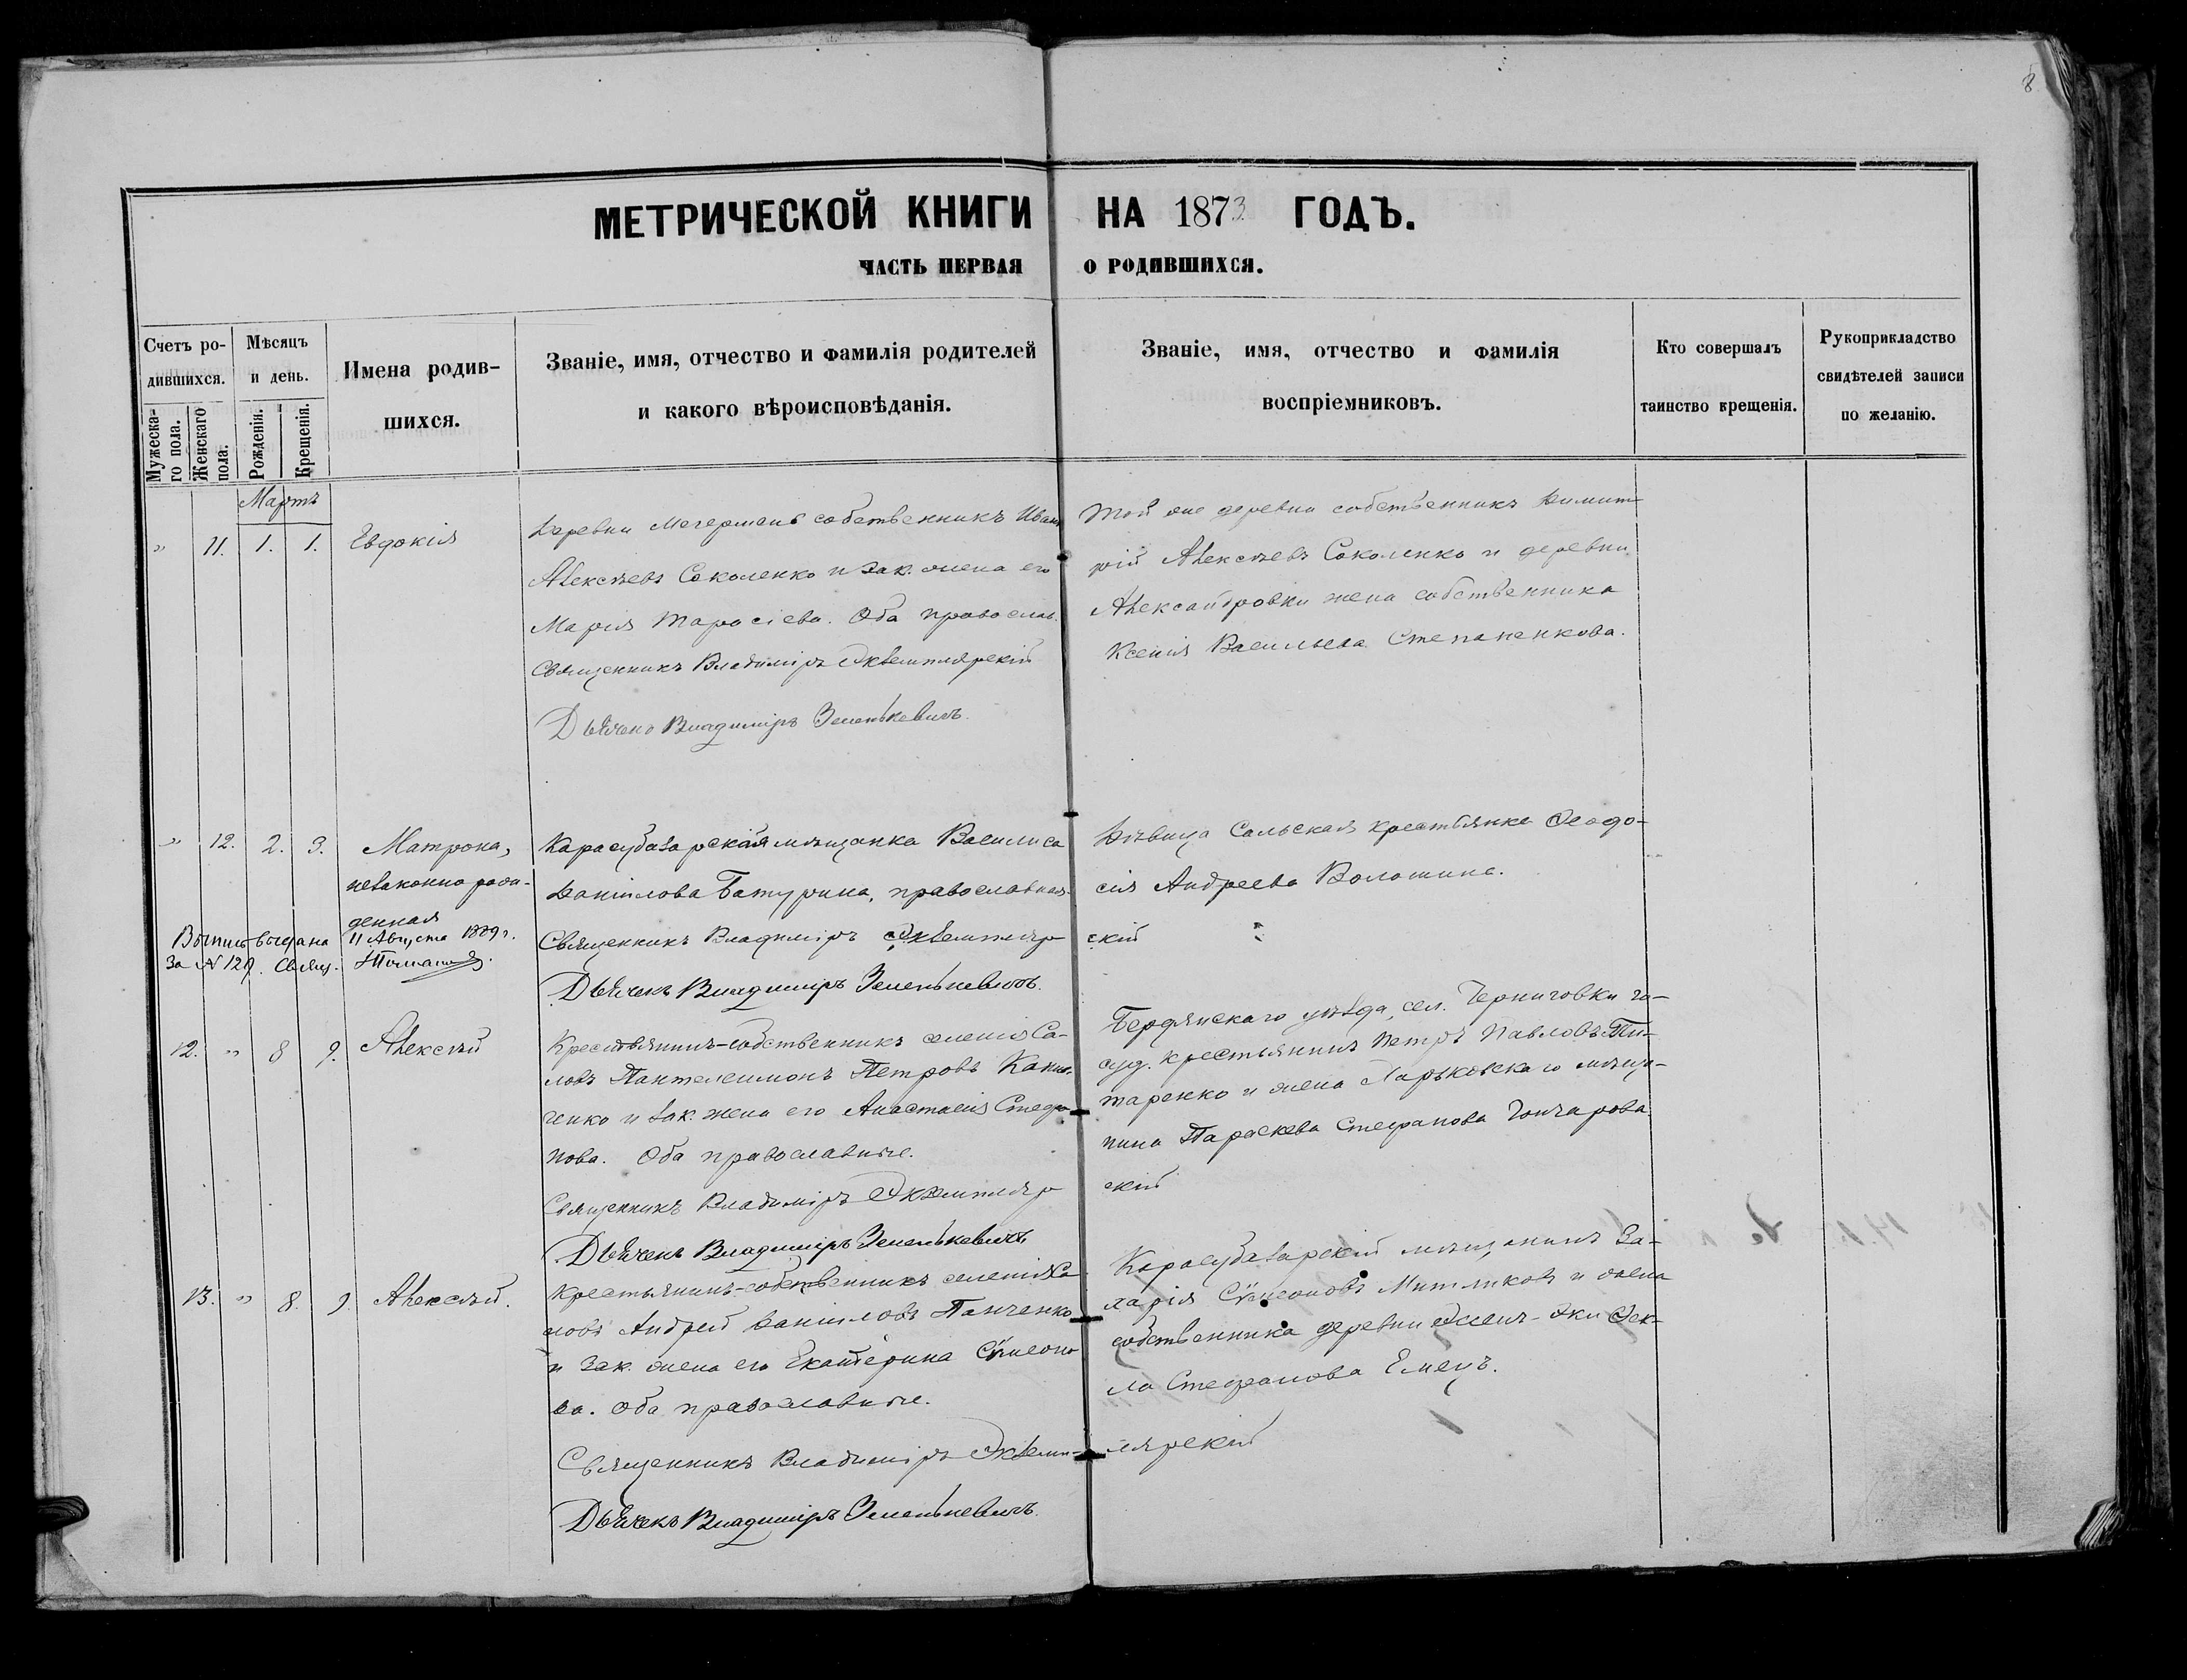 8
МЕТРИЧЕСКОЙ КНИГИ НА 1873 ГОДЪ.
ЧАСТЬ ПЕРВАЯ О РОДИВШИХСЯ.
Счетъ родившихся.
Мужескаго пола.
Женскаго пола.
Мѣсяцъ и день.
Рожденія.
Крещенія.
Имена родившихся.
Званіе, имя, отчество и фамилія родителей
и какого вѣроисповѣданія.
Званіе, имя, отчество и фамилія
воспріемниковъ.
Кто совершалъ
таинство крещенія.
Рукоприкладство
свидѣтелей записи
по желанію.
Мартъ
" 11. 1. 1. Евдокія
Деревни собственникъ Иванъ
Алексѣевъ Соколенко и зак. жена его
Марія Тарасіева. Оба православ.
Священникъ Владиміръ Экземплярскій
Дьячекъ Владиміръ Зеленькевичъ.
Той же деревни собственникъ Димит-
рій Алексѣевъ Соколенко и деревни
Александровки жена собственника
Ксенія Васильева Степаненкова.
" 12. 2. 3. Матрона,
незаконно рож-
денная
Карасубазарская мѣщанка Василиса
Даніилова Батурина, православная.
Священникъ Владиміръ Экземпляр
Дьячекъ Владиміръ Зеленькевичъ.
Дѣвица Сальская крестьянка Ѳеодо-
сія Андреева Волошина.
скій
Выпись выдана 11 Августа 1889 г.
За № 129. Свящ.
12. " 8 9. Алексѣй
Крестьянинъ-собственникъ селенія Са-
ловъ Пантелеимонъ Петровъ
ченко и зак. жена его Анастасія Стефа-
нова. Оба православные.
Священникъ Владиміръ Экземпляр
Дьячекъ Владиміръ Зеленькевичъ
Бердянскаго уѣзда, сел. Черниговки го-
суд. крестьянинъ Петръ Павловъ Ти-
таренко и жена Харьковскаго мѣща-
нина Параскева Стефанова Гончарова
скій
13. " 8. 9. Алексѣй.
Крестьянинъ-собственникъ селенія Са-
ловъ Андрей Даніиловъ Панченко
и зак. жена его Екатерина Сѵмеоно
ва. Оба православные.
Священникъ Владиміръ Экземп-
Дьячекъ Владиміръ Зеленькевичъ.
Карасубазарскій мѣщанинъ За-
харія Сѵмеоновъ Митликовъ и жена
собственника деревни Ѳек-
ла Стефанова Емецъ.
лярскій